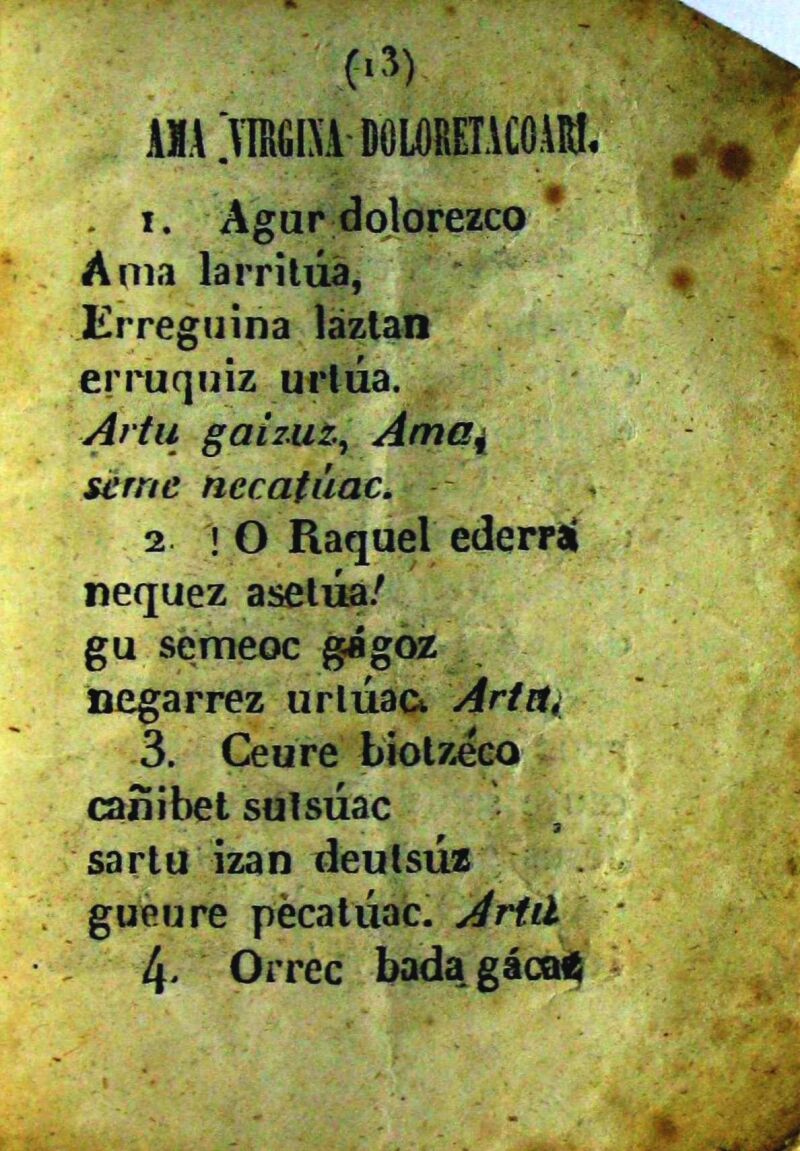 (13)
AMA VIRGINA DOLORETACOARI.
1. Agur dolorezco
Ama larritúa,
Erreguina laztan
erruquiz urtúa.
Artu gaizuz, Ama,
seme necatúac.
2. ! O Raquel ederra
nequez asetúa!
gu semeoc gágoz
negarrez urtúac. Artu.
3. Ceure biotzéco
cañibet sutsúac
sartu izan deutsúz
gueure pecatúac. Artu
4. Orrec bada gácaz